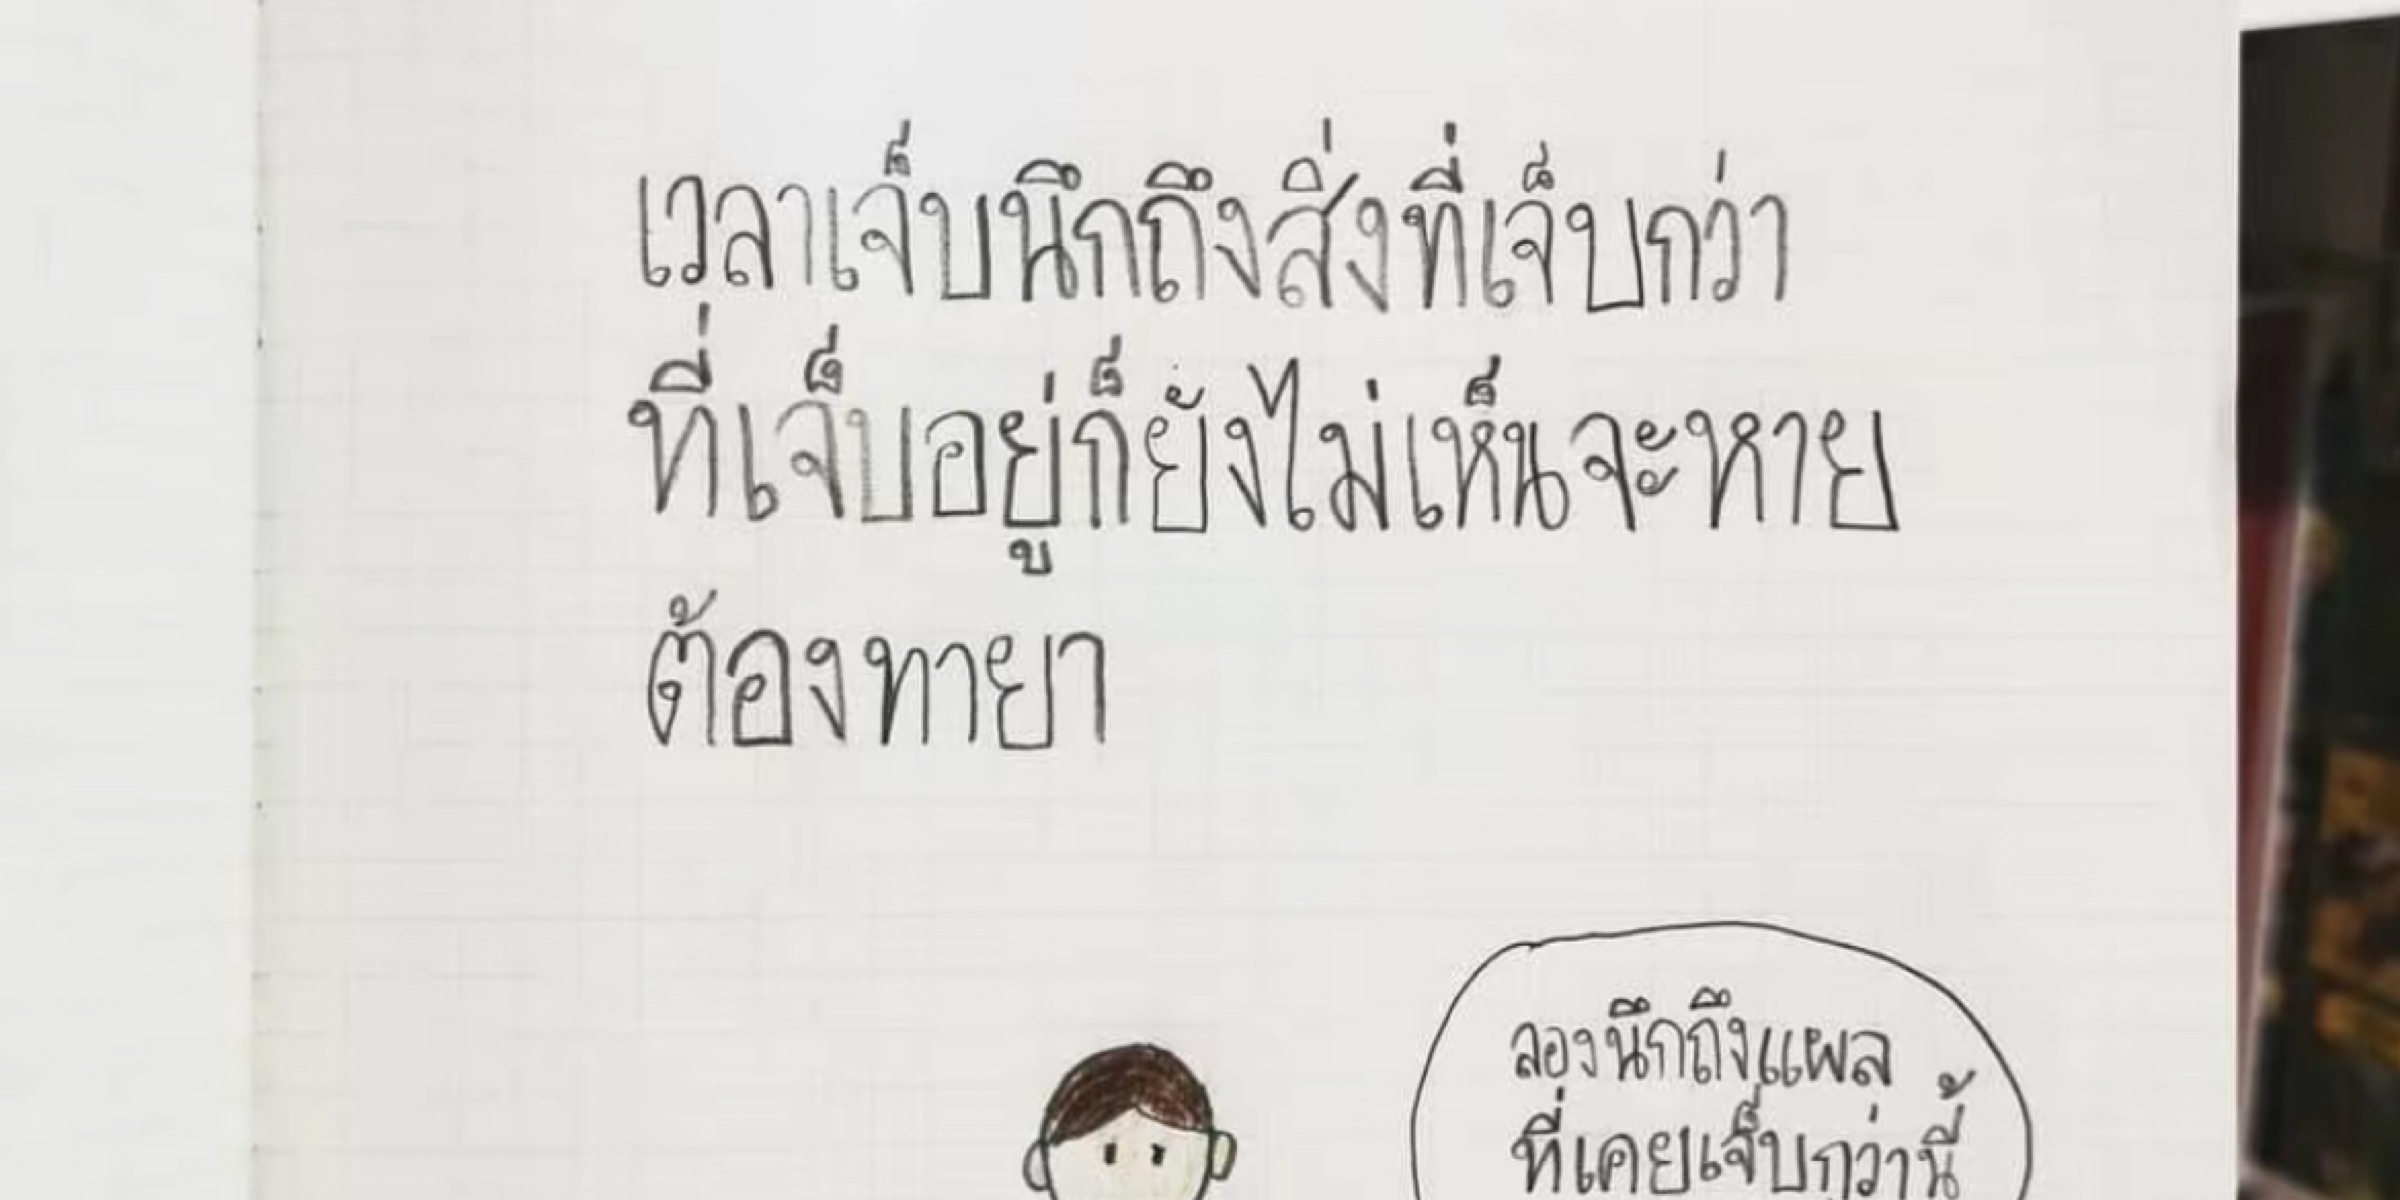 เวลาเจ็บนึกถึงสิ่งที่เจ็บกว่า
ที่เจ็บอยู่ก็ยังไม่เห็นจะหาย
ต้องทายา
ลองนึกถึงแผล
ที่เคยเจ็บกว่านี้